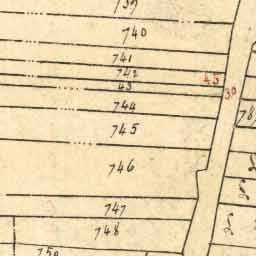 739
740
741
742
43
43
30
744
745
78
746
747
748
750